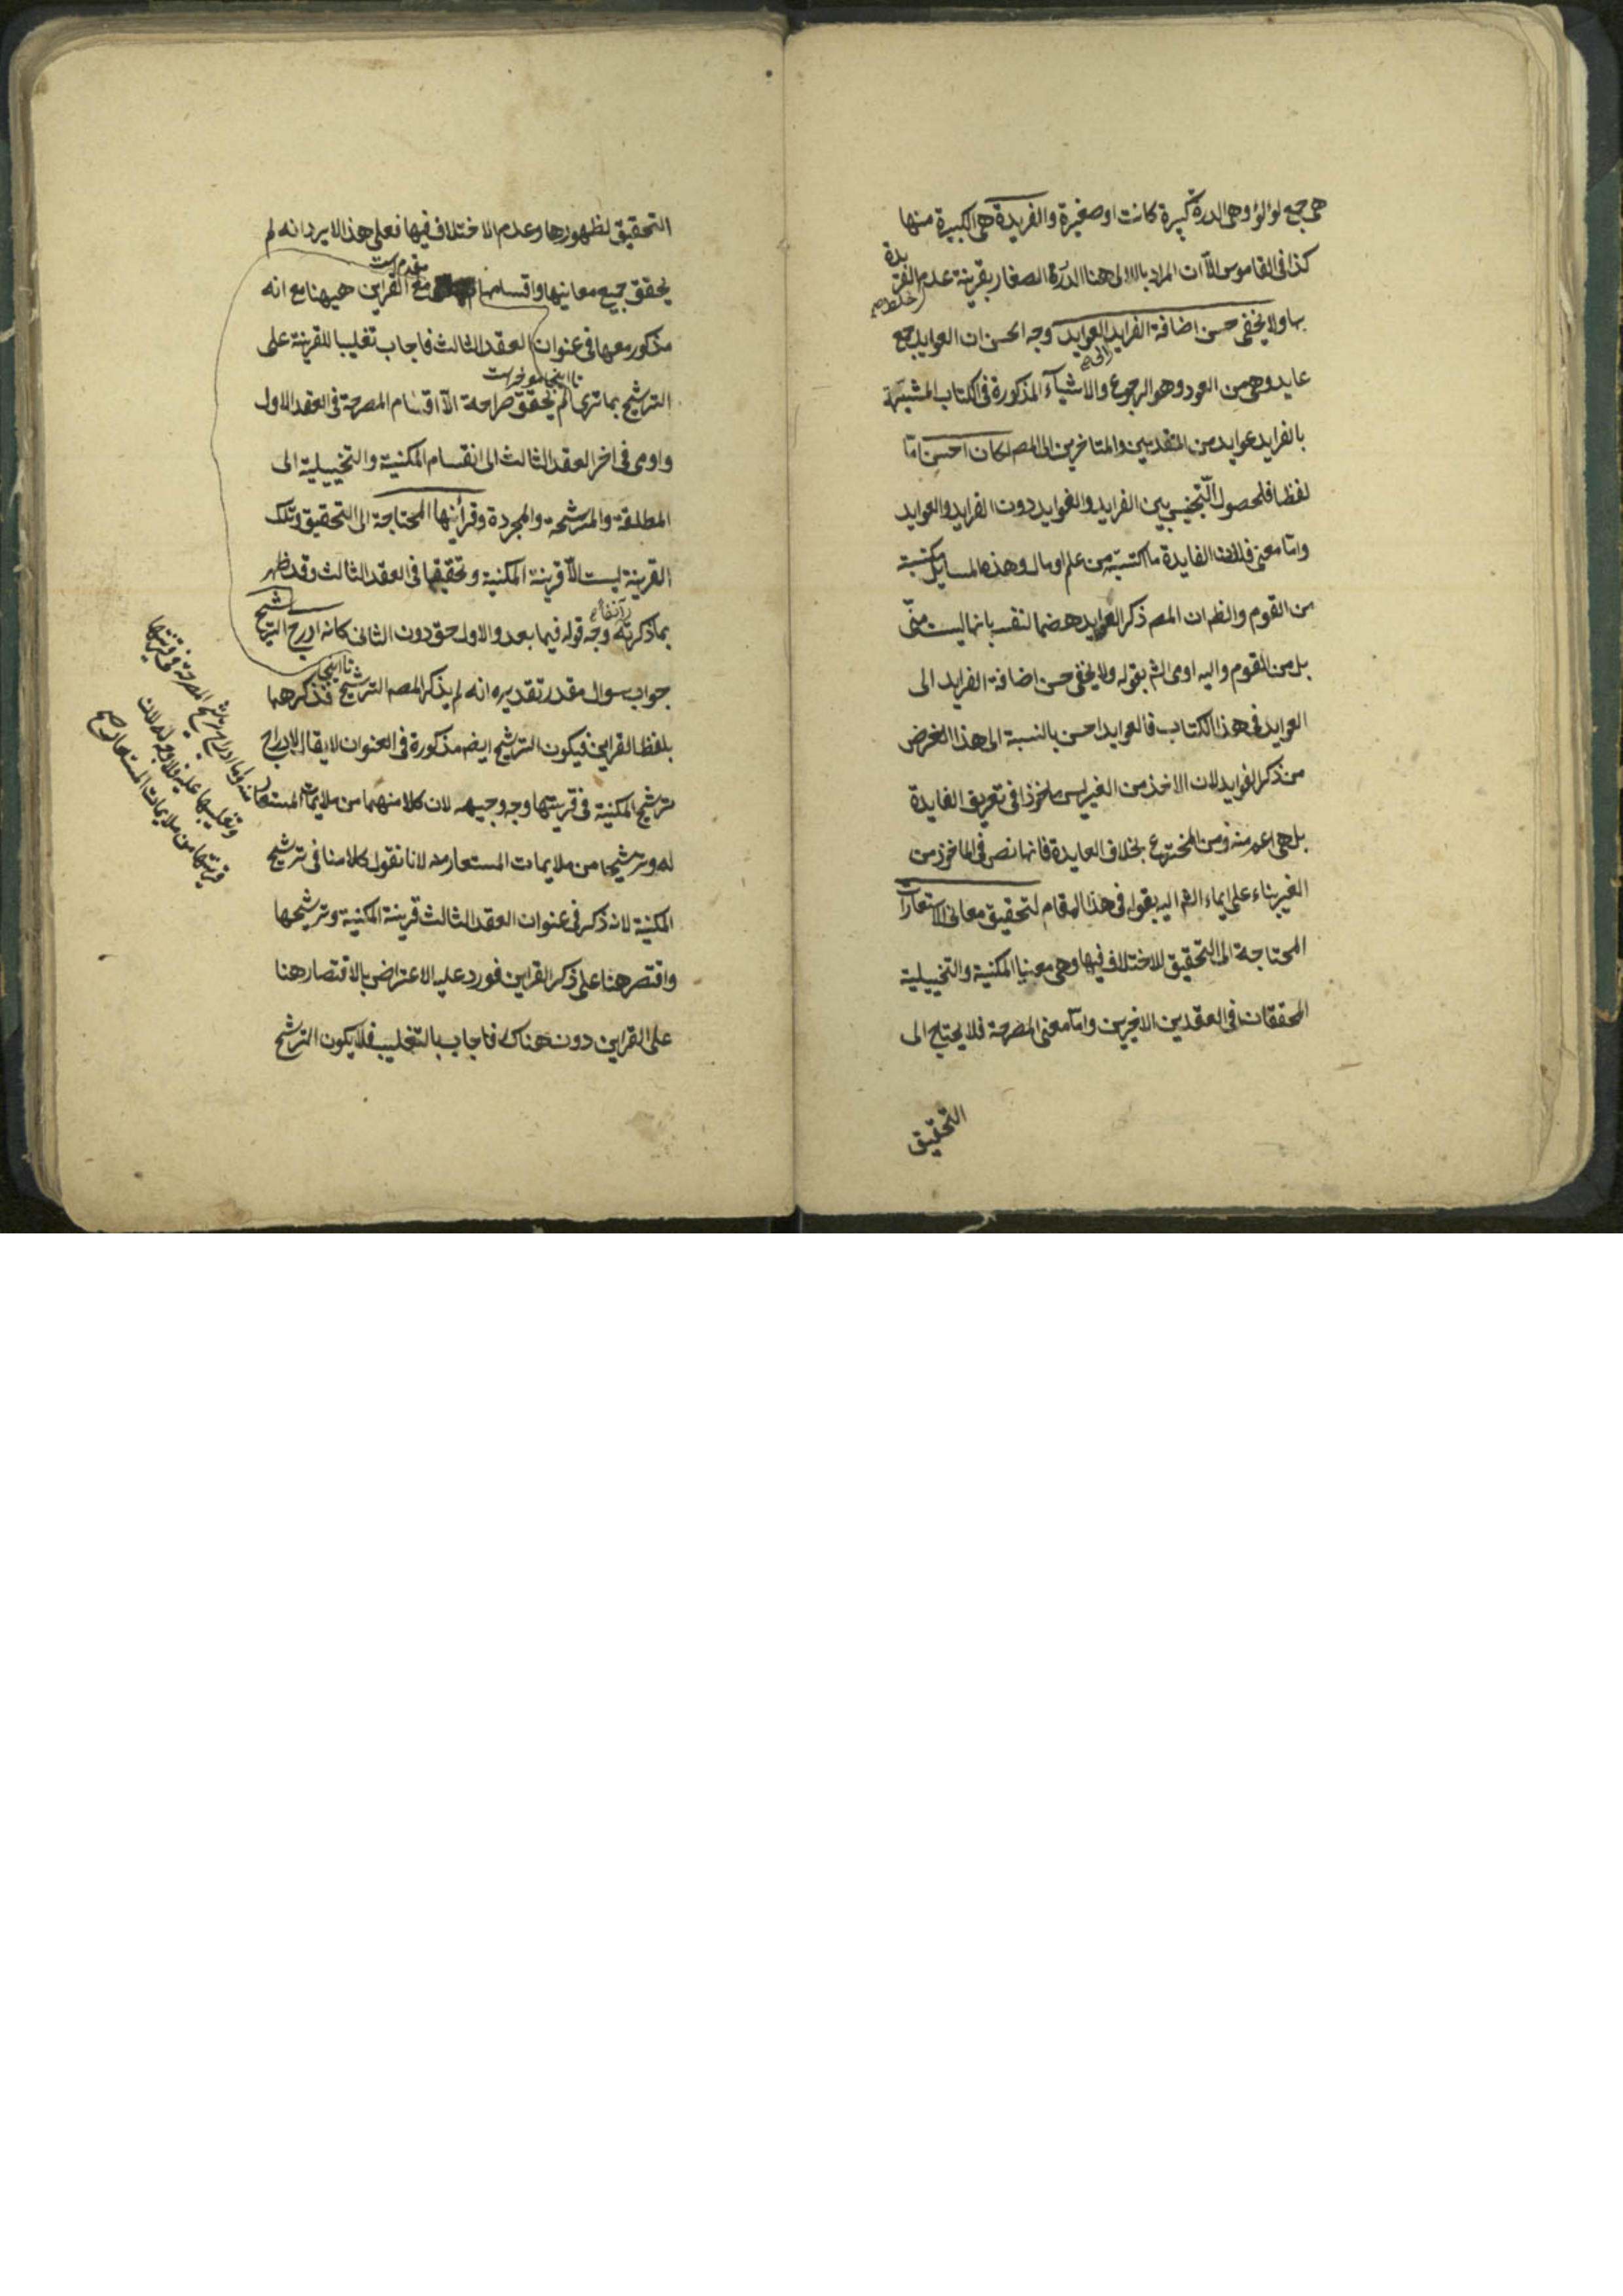 هى جمع لؤلؤ وهى الدرة كبيرة كانت او صغيرة والفريدة هى الكبيرة منها
كذا فى القاموس الا ان المراد باللالى هنا الدرة الصغار بقرينة عدم الفريدة
بها ولا يخفى حسن اضافة الفرايد العوايد وجه الحسن ان العوايد جمع
عايد وهى من العود وهو الرجوع والاشيآء المذكورة فى الكتاب المشبهة
بالفرايد عوايد من المتقدمين والمتاخرين الى المصـ لكان احسن امّا
لفظا فلحصول التّجنيس بين الفرايد والفوايد دون الفرايد والعوايد
وامّا معنى فلان الفايدة ما اكتسبته من علم او مال وهذه المسايل مكتسبة
من القوم والظـ ان المصـ ذكر العوايد هضما لنفسه بانها ليست منّى
بل من القوم واليه اومى الشـ بقوله ولا يخفى حسن اضافة الفرايد الى
العوايد فى هذا الكتاب فالعوايد احسن بالنسبة الى هذا الغرض
من ذكر الفوايد لان الاخذ من الغير ليس ماخوذا فى تعريف الفايدة
بل هى اعم منه ومن المخترع بخلاف العايدة فانها نص فى الماخوذ من
الغير بناء على ايماء الشـ اليه بقوله فى هذا المقام لتحقيق معانى الاستعارات
المحتاجة الى التحقيق للاختلاف فيها وهى معنيا المكنية والتخييلية
المحققان فى العقدين الاخيرين وامّا معنى المصرحة فلا يحتاج الى
التحقيق
التحقيق لظهورها وعدم الاختلاف فيها فعلى هذا لا يرد انه لم
يحقق جميع معانيها واقسامها مع القراين هيهنا مع انه
مقدم است
مذكور معها فى عنوان العقد الثالث فاجاب تغليبا للقرينة على
تا اينجا مؤخر است
الترشيح بما ترى لم يحقق صراحة الّا اقسام المصرحة فى العقد الاول
واومى فى اخر العقد الثالث الى انقسام المكنية والتخييلية الى
المطلقة والمرشحة والمجردة وقرأينها المحتاجة الى التحقيق وتلك
القرينة ليست الّا قرينة المكنية وتحقيقها فى العقد الثالث وقد ظهر
بما ذكرته آنفا وجه قوله فيما بعد والاول حق دون الثانى كانه ادرج الترشيح
تا اينجا
جواب سوال مقدر تقديره انه لم يذكر المصـ الترشيح فذكرهما
بلفظ القراين فيكون الترشيح ايضـ مذكورة فى العنوان لا يقال لادراج
ترشيح المكنية فى قرينتها وجه وجيه لان كلا منهما من ملايمات المستعار
له وترشيحا من ملايمات المستعار منه لانا نقول كلامنا فى ترشيح
المكنية لانه ذكر فى عنوان العقد الثالث قرينة المكنية وترشيحها
واقتصر هنا على ذكر القراين فورد عليه الاعتراض بالاقتصار هنا
على القراين دون هناك فاجاب بالتغليب فلا يكون الترشيح
منه واما ادراج ترشيح المصرحة فى قرينتها
وتغليبها عليه فلا وجه له لان
قرينتها من ملايمات المستعار له صح